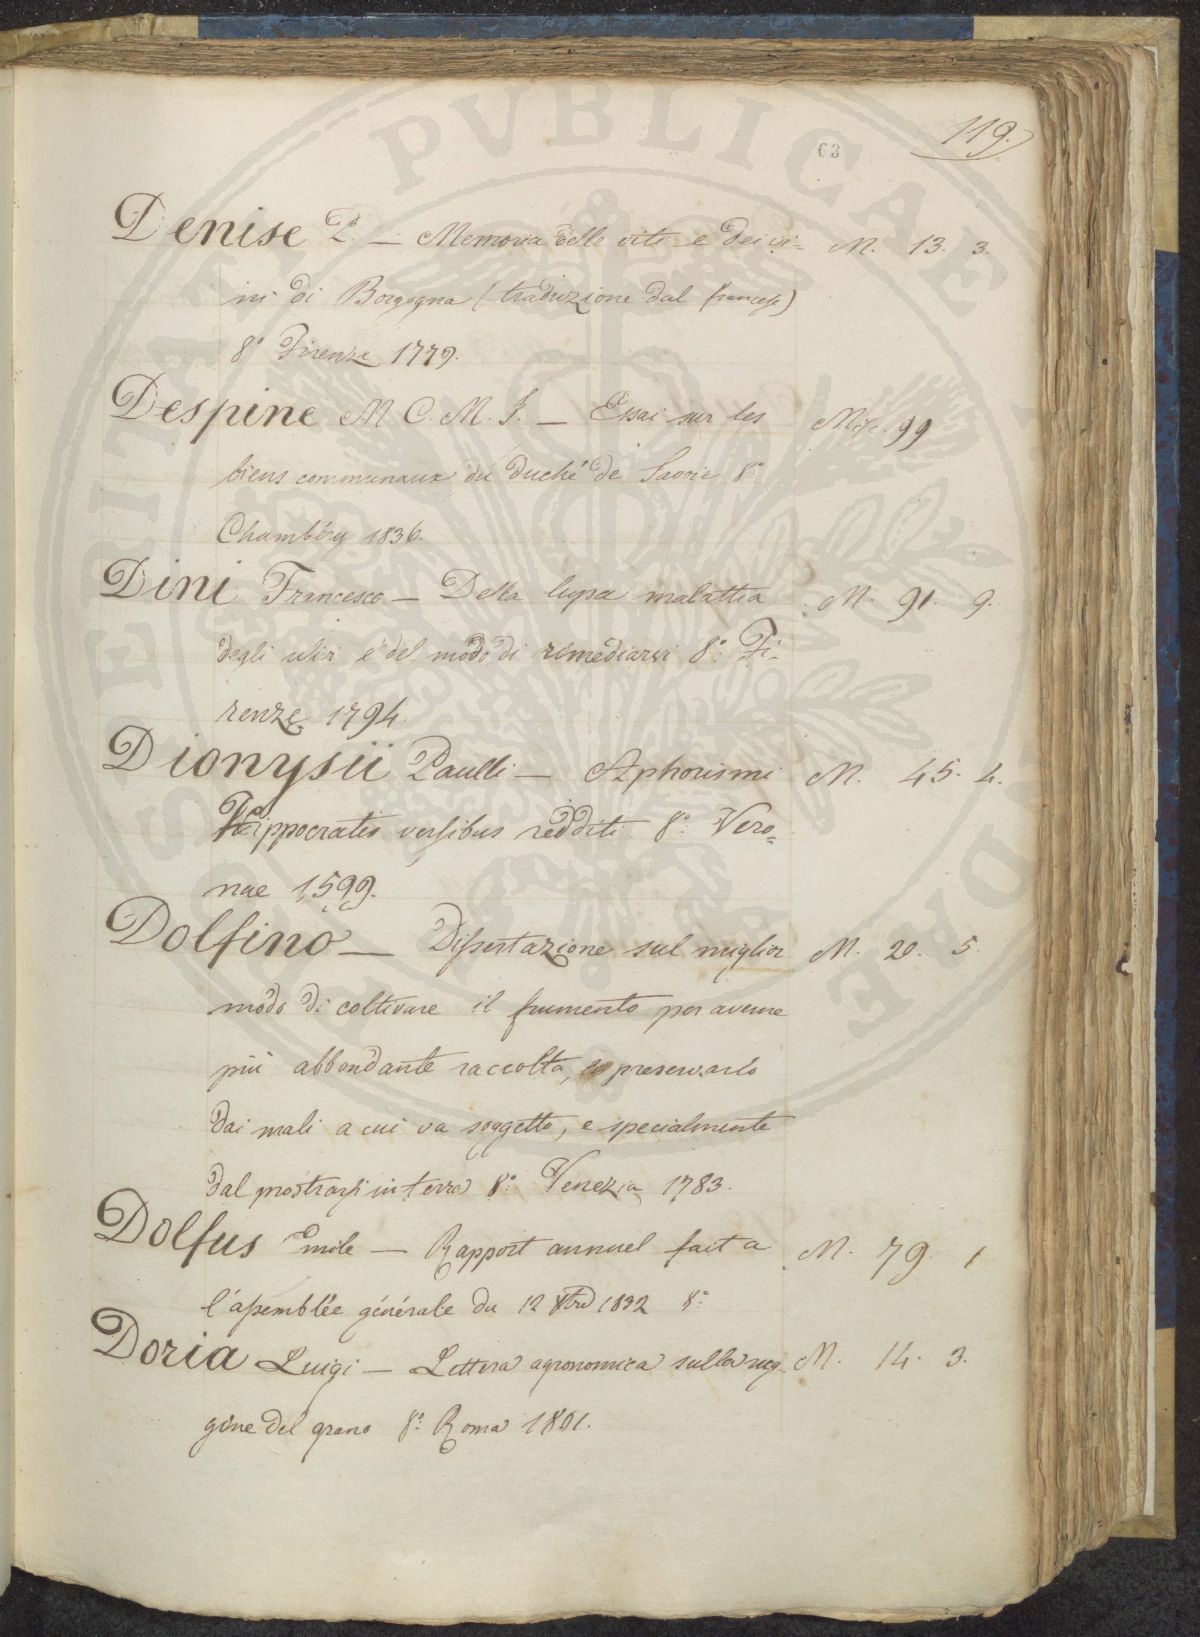 119.
63
Denise P. — Memoria delle viti e dei vi= M. 13. 3.
ni di Borgogna (traduzione dal francese)
8° Firenze 1779.
Despine M. C. M. J. — Essai sur les Misc. 99
biens communaux du duché de Savoie 8°
Chambéry 1836.
Dini Francesco — Della lupa malattia M. 91. 9.
degli ulivi e del modo di rimediarvi 8° Fi-
renze 1794.
Dionysii Paulli — Aphorismi M. 45. 4.
Hippocratis versibus redditi. 8° Vero=
nae 1599.
Dolfino — Dissertazione sul miglior M. 20. 5.
modo di coltivare il frumento per averne
più abbondante raccolta, preservarlo
dai mali a cui va soggetto, e specialmente
dal prostrarsi in terra 8° Venezia 1783.
Dolfus Emile — Rapport annuel fait a M. 79. 1
l'assemblée générale du 12 1832 8°
Doria Luigi — Lettera agronomica sulla rug- M. 14. 3.
gine del grano 8° Roma 1801.
PVBLICAE